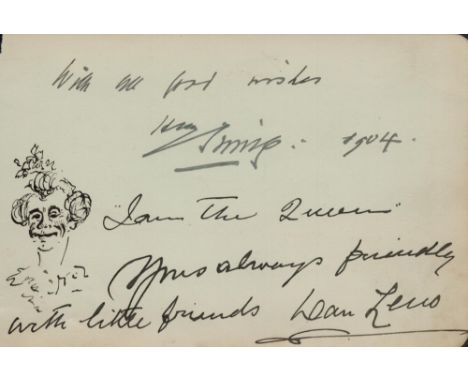 With all good wishes
Henry Irving. 1904.
I am The Queen
Yours always friendly
with little friends Dan Leno